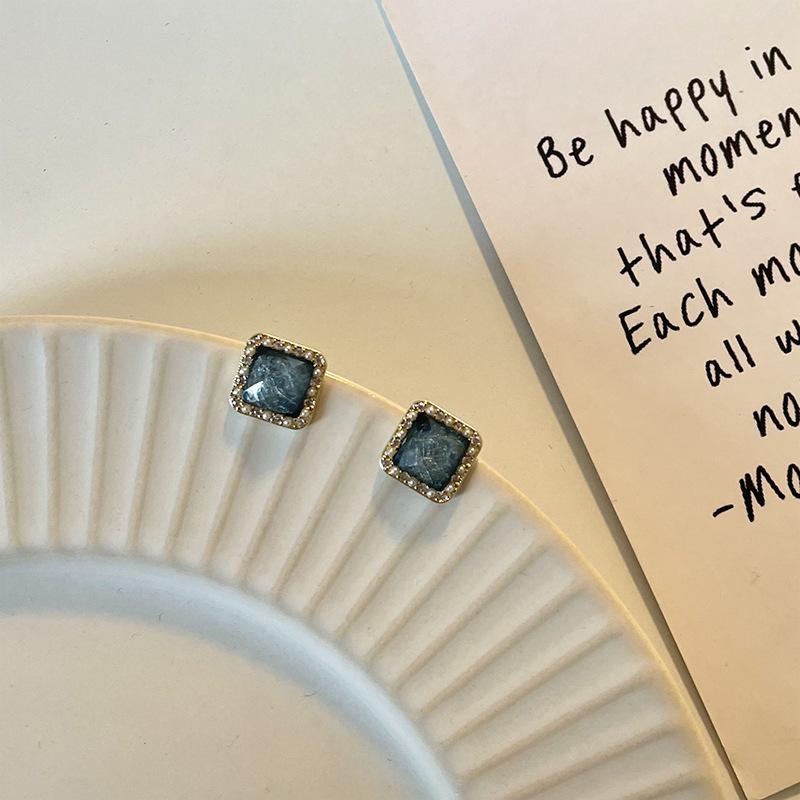 Be happy in
momen
that's
Each mo
all w
no
-Mo